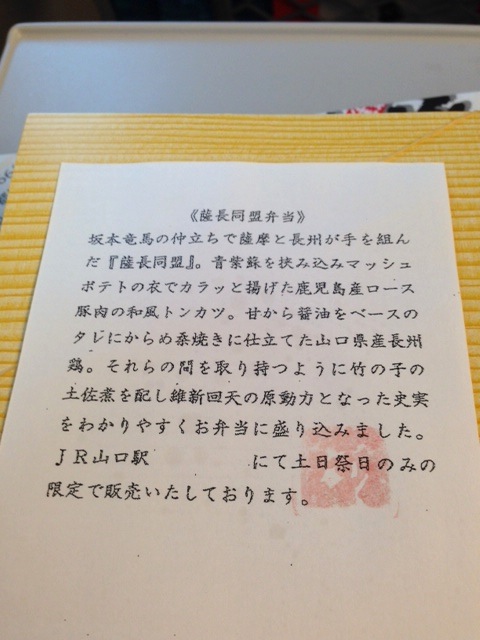 《薩長同盟弁当》
坂本竜馬の仲立ちで薩摩と長州が手を組ん
だ『薩長同盟』。青紫蘇を挟み込みマッシュ
ポテトの衣でカラッと揚げた鹿児島産ロース
豚肉の和風トンカツ。甘から醤油をベースの
タレにからめ呑焼きに仕立てた山口県産長州
鶏。それらの間を取り持つように竹の子の
土佐煮を配し維新回天の原動力となった史実
をわかりやすくお弁当に盛り込みました。
JR山口駅 にて土日祭日のみの
限定で販売いたしております。